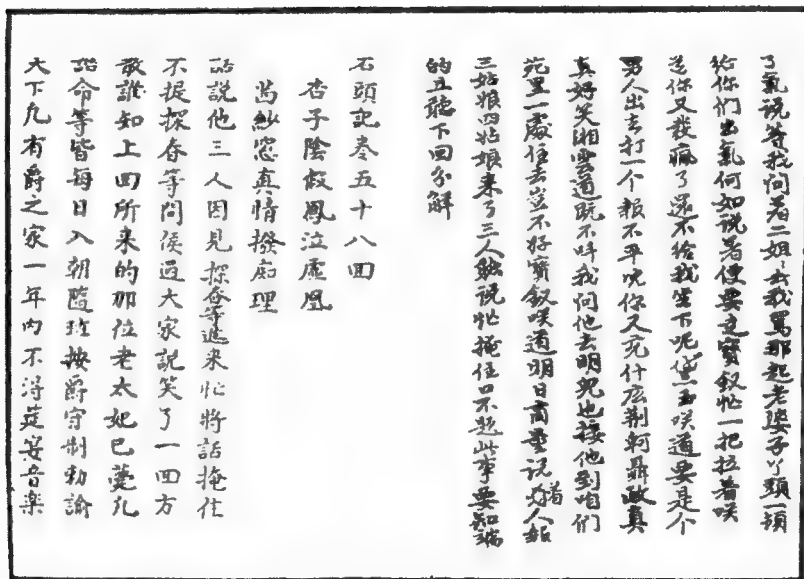 了氣说等我问着二姐去我罵那起老婆子丫頭一頓
给你们出氣何如说着便要走寳釵忙一把拉着咲
道你又發瘋了還不给我坐下呢黛玉咲道要是个
男人出去打一个報不平児你又充什広荆軻聶政真
真好笑湘雲道既不呌我问他去明兒也接他到咱们
苑里一處住去豈不好寳釵咲道明日商量说着人報
三姑娘四姑娘来了三人聴说忙掩住口不题此事要知端
的且聽下回分解
石頭記卷五十八回
杏子陰假鳳泣虚凰
茜紗窓真情揆痴理
話説他三人因見探春等進来忙將話掩住
不提探春等问候過大家説笑了一回方
散誰如上回所来的那位老太妃已薨凡
誥命等皆每日入朝隨班按爵守制勅諭
天下凡有爵之家一年内不淂筵宴音楽